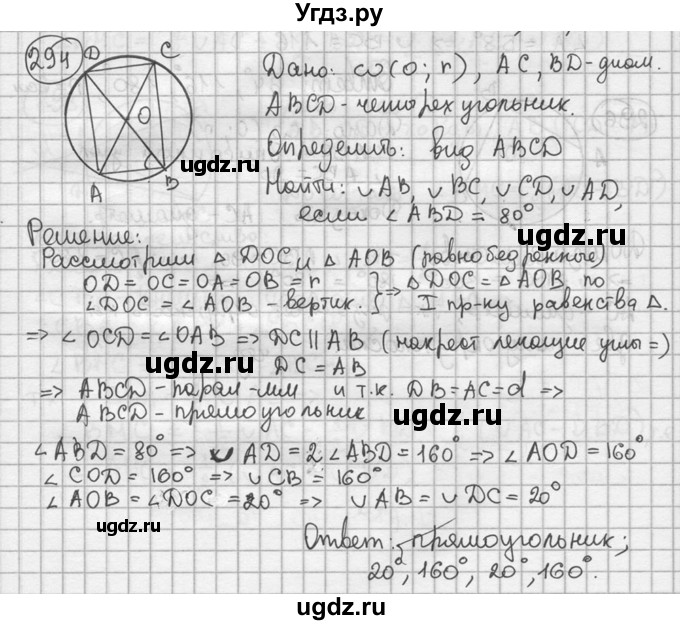 Угдз.ру
294
D
C
O
A
B
Дано: ω(O; r), AC, BD-диам.
ABCD-четырехугольник.
ugdz.ru
Определить: вид ABCD
Найти: ∪AB, ∪BC, ∪CD, ∪AD,
если ∠ABD = 80°
Решение:
ugdz.ru
Рассмотрим △DOC и △AOB (равнобедренные)
OD=OC=OA=OB=r } ⇒ △DOC=△AOB по
∠DOC=∠AOB-вертик. I пр-ку равенства △.
⇒ ∠OCD=∠OAB ⇒ DC∥AB (накрест лежащие углы =)
ugdz.ru
DC=AB
⇒ ABCD-парал-мм и т.к. DB=AC=d ⇒
ugdz.ru
ABCD-прямоугольник
∠ABD=80° ⇒ ∪AD=2∠ABD=160° ⇒ ∠AOD=160°
∠COD=160° ⇒ ∪CB=160°
∠AOB=∠DOC=20° ⇒ ∪AB=∪DC=20°
ugdz.ru
Ответ: прямоугольник;
20°, 160°, 20°, 160°.
ugdz.ru